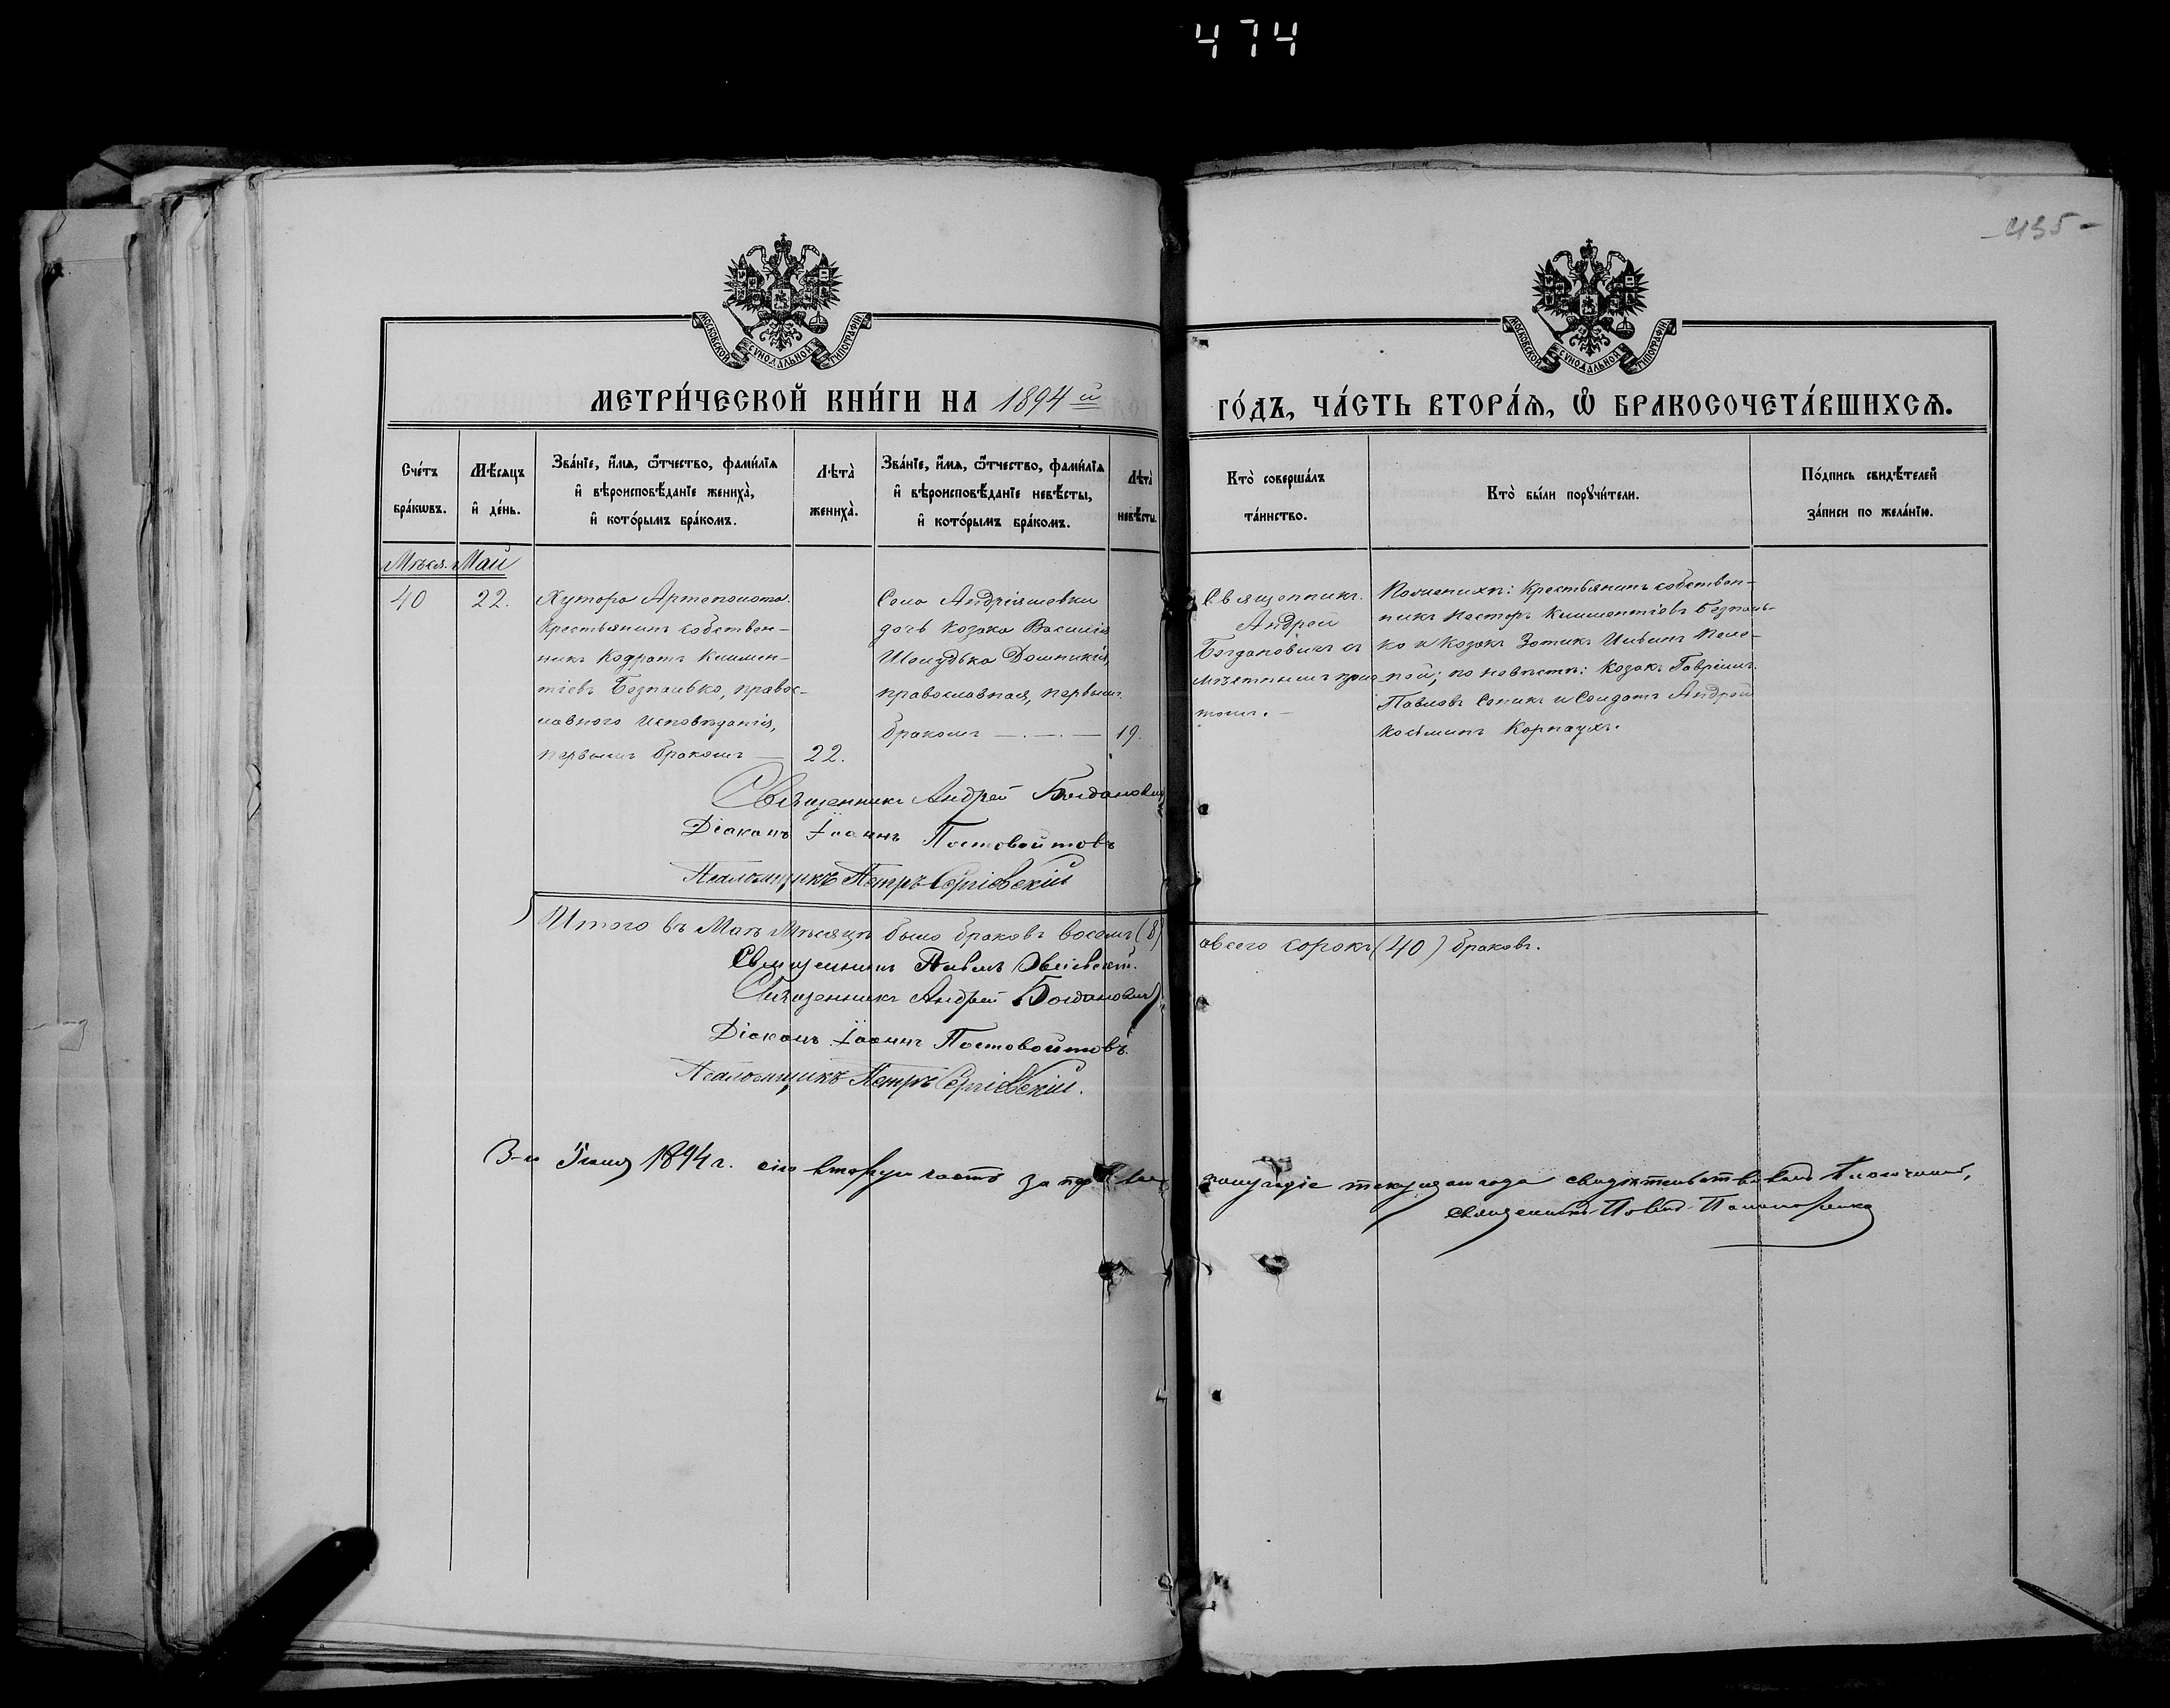 474
435-
МОСКОВСКОЙ СУНОДАЛЬНОЙ ТИПОГРАФІИ
МОСКОВСКОЙ СУНОДАЛЬНОЙ ТИПОГРАФІИ
МЕТРИ́ЧЕСКОЙ КНИ́ГИ НА 1894 й
ГО́ДЪ, ЧА́СТЬ ВТОРА́Я, Ѽ БРАКОСОЧЕТА́ВШИХСЯ.
Сче́тъ
бра́кѡвъ.
Мѣ́сяцъ
и҆ де́нь.
Зва́нїе, и҆́мя, ѻ҆́тчество, фами́лїя
и҆ вѣроисповѣ́данїе жениха̀,
и҆ кото́рымъ бра́комъ.
Лѣта̀
жениха̀.
Зва́нїе, и҆́мя, ѻ҆́тчество, фами́лїя
и҆ вѣроисповѣ́данїе невѣ́сты,
и҆ кото́рымъ бра́комъ.
Лѣта̀
невѣ́сты.
Кто̀ соверша́лъ
та́инство.
Кто̀ бы́ли порꙋчи́тели.
По́дпись свидѣ́телей
за́писи по жела́нїю.
Мѣся. Май
40
22.
Хутора Артеполота
крестьянинъ собствен-
никъ Кодратъ Климен-
тіевъ Безпалько, правос-
лавного исповѣданія,
первымъ бракомъ —
22.
Села Андріяшевки
дочь козака Василія
Шолудька Домникія,
православная, первымъ
бракомъ — . — . —
19.
Священникъ
Андрей
Богдановичъ съ
мѣстнымъ прич-
томъ. —
По женихѣ: крестьянинъ собствен-
никъ Несторъ Климентіевъ Безпаль-
ко и козакъ Зотикъ Ильинъ
по невѣстѣ: козакъ Гавріилъ
Павловъ Соникъ и Солдатъ Андрей
Карпаухъ.
Священникъ Андрей Богдановичъ
Діаконъ Іоаннъ Постовойтовъ
Псаломщикъ Петръ Сергіевскій
Итого въ Маѣ мѣсяцѣ было браковъ восемъ (8)
авсего сорокъ (40) браковъ.
Священникъ Павелъ
Священникъ Андрей Богдановичъ
Діаконъ Іоаннъ Постовойтовъ.
Псаломщикъ Петръ Сергіевскій.
3-го 1894 г. сію вторую часть за первое
полугодіе текущаго года свидѣтельствовалъ Благочинный,
священникъ Павелъ Пономаренко